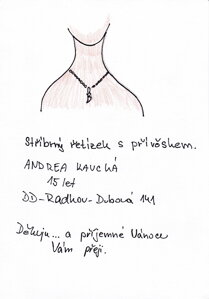 Stříbrný řetízek s přívěškem.
ANDREA KAUCKÁ
15 let
DD-Radkov-Dubová 141
Děkuju... a příjemné Vánoce
Vám přeji.